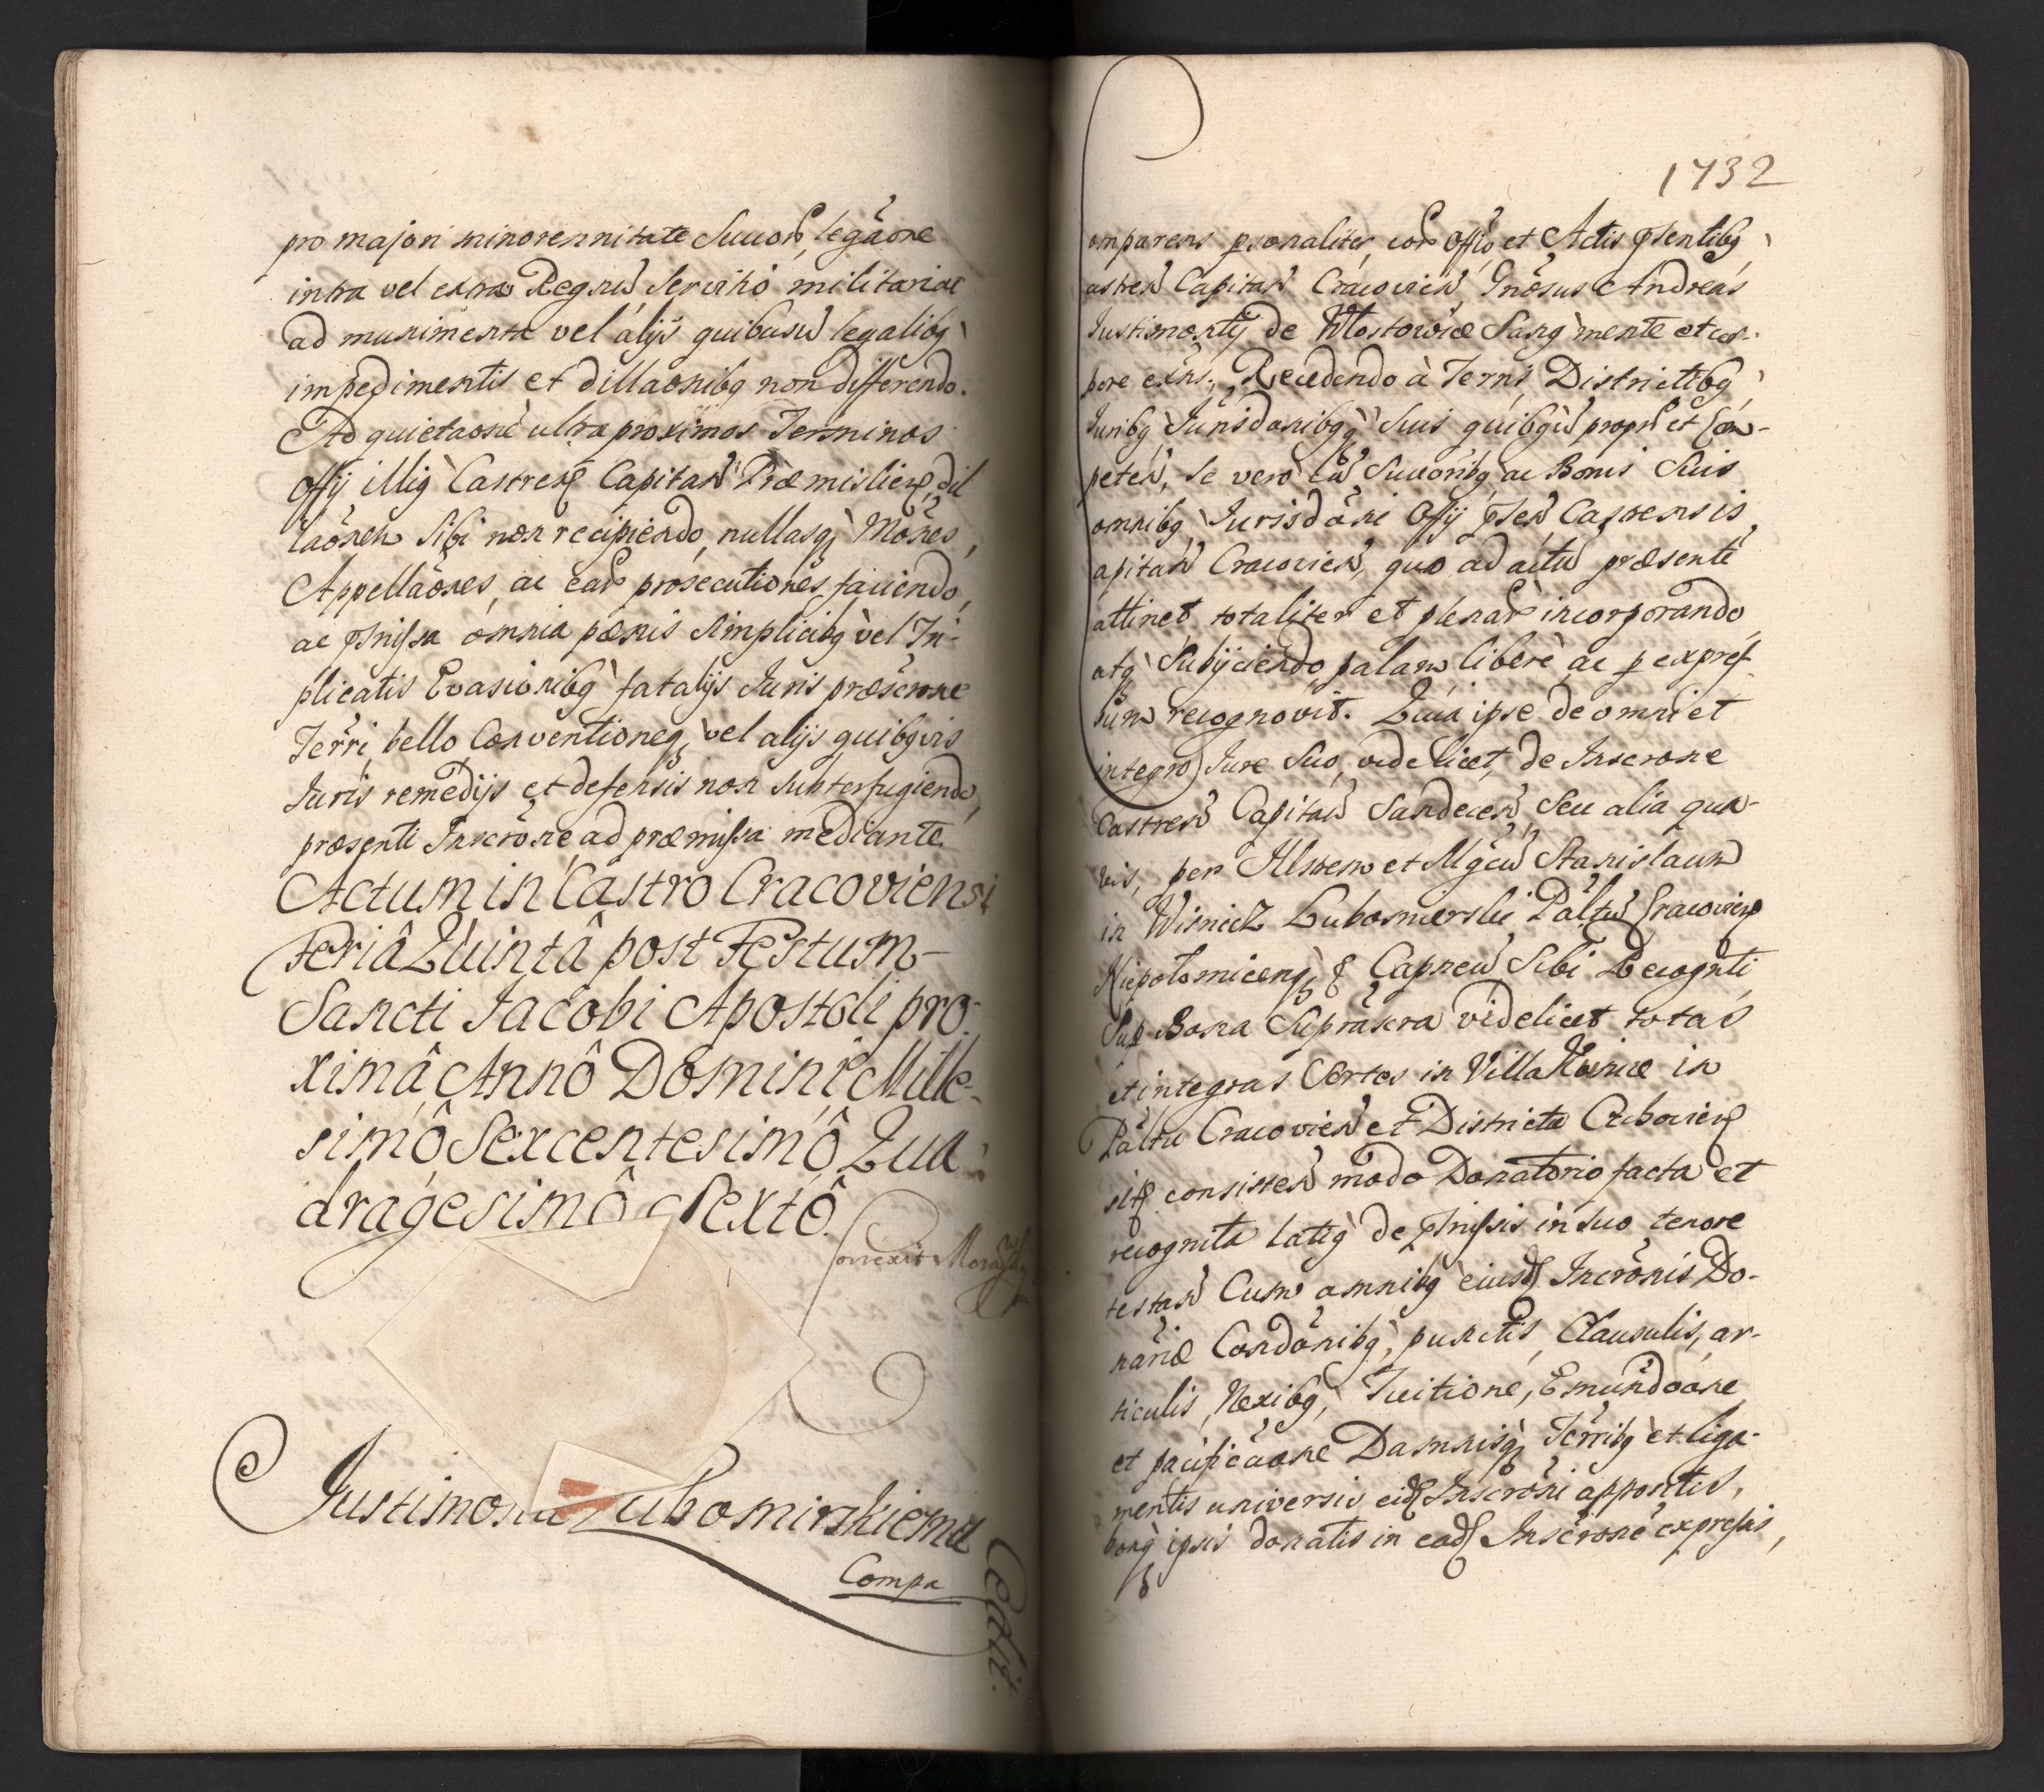 pro majori minorennitate Succor, legãone
intra vel extra Regnu servitio militari ac
ad munimenta vel alijs quibusu legalibq
impedimentis et dillaonibq non differendo.
Ad quietaone ultra proximos Terminos
Offij illiq Castren Capitan Præmislien, dil
laonem sibi non recipiendo, nullasq Mones,
Appellaones, ac ear prosecutiones faciendo,
ac pmissa omnia pænis simplicibq vel Tri-
plicatis Evasionibq fatalijs Juris præscrone
Terri, bello Conventioneq, vel alijs quibqvis
Juris remedijs et defensis non subterfugiendo,
præsenti Inscrone ad præmissa mediante.
Actum in Castro Cracoviensi
Feriâ Quintâ post Festum-
Sancti Jacobi Apostoli pro-
ximâ, Annô Domini Mille-
simô Sexcentesimô Qua-
dragesimô Sextô.
Correxit
Justimon Lubomirskiemu
Compa
Cedit.
1732
omparens psonaliter cor Offo et Actis psentibq
astren Capitan Cracovien, Gnosus Andreas
Justimonty de Wlostowice Sanq mente et cor-
pore exns. Recedendo à Terris Districtibq
Juribq Jurisdonibqq suis quibqu propr et Com-
peten, Se vero cu Succoribq ac Bonis Suis
omnibq Jurisdoni Offij psen Castrensis
apitan Cracovien, quo ad actu præsente
attinet totaliter et plenar incorporando
atq Subijciendo, palam liberè ac p expres-
sum recognovit. Quia ipse de omni et
integro Jure Suo, videlicet, de Inscrone
Castren Capitan Sandecen Seu alia qua-
vis, per Illstrem et Mgcu Stanislaum
in Wisnicz Lubomirski Paltu Cracovien
Niepolomicenq & Capneu Sibi Recognti
Sup Bona Suprascra videlicet totas
et integras Sortes in Villa in
Paltu Cracovien et Districtu Czchovien
sit consisten modo Donatorio facta et
recognita latiq de pmissis in suo tenore
testan Cum omnibq eiusd Incronis Do-
nariæ Condonibq, punctis, Clausulis, ar-
ticulis, Nexibq, Tuitione, Emundaone
et pacificaone Damnisq Terribq et liga-
mentis universis eid Inscroni appontis,
bonq ipsis donatis in ead Inscrone expressis,